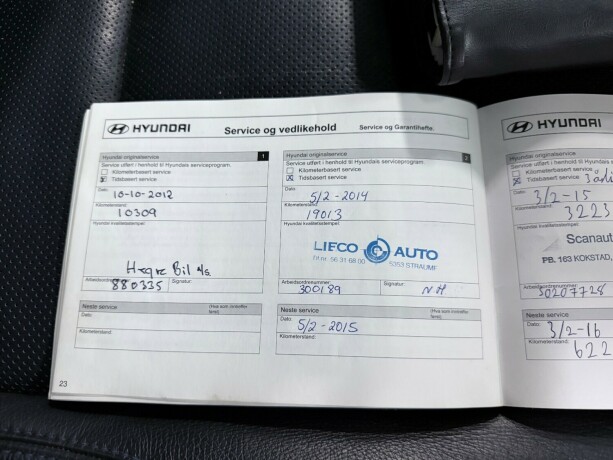 HYUNDAI
Service og vedlikehold
Service og Garantihefte
Hyundai originalservice
1
Service utført i henhold til Hyundais serviceprogram.
Kilometerbasert service
Tidsbasert service
Dato:
10-10-2012
Kilometerstand:
10309
Hyundai kvalitetsstempel:
Hegre Bil a/s
Arbeidsordrenummer:
880335
Signatur:
Neste service
(Hva som inntreffer først)
Dato:
Kilometerstand:
23
Hyundai originalservice
Service utført i henhold til Hyundais serviceprogram.
Kilometerbasert service
Tidsbasert service
Dato:
5/2-2014
Kilometerstand:
19013
Hyundai kvalitetsstempel:
LIECO AUTO
Tlf.nr. 56 31 68 00
5353 STRAUME
Arbeidsordrenummer:
300189
Signatur:
Neste service
(Hva som inntreffer først)
Dato:
5/2-2015
Kilometerstand:
HYUNDAI
Hyundai originalservice
Service utført i henhold til Hy
Kilometerbasert service
Tidsbasert service
Dato:
3/2-15
Kilometerstand:
3223
Hyundai kvalitetsstempel:
Scanaut
PB. 163 KOKSTAD,
Arbeidsordrenummer:
30207728
Neste service
Dato:
3/2-16
Kilometerstand:
622